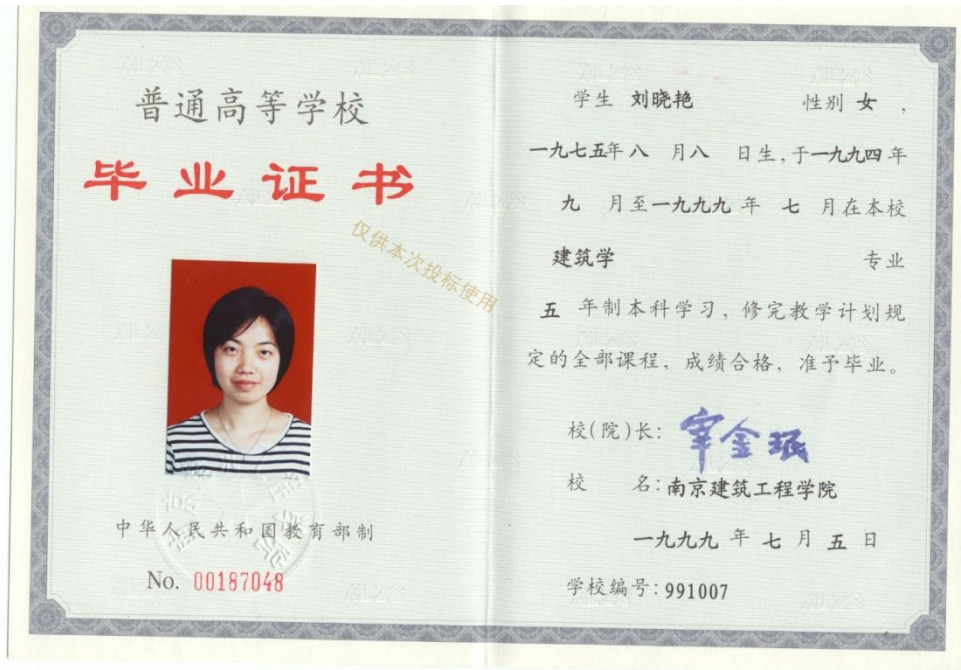 普通高等学校
毕业证书
仅供本次投标使用
中华人民共和国教育部制
No. 00187048
学生 刘晓艳 性别 女，
一九七五年八 月八 日生，于一九九四年
九 月至一九九九 年 七 月在本校
建筑学 专业
五 年制本科学习，修完教学计划规
定的全部课程，成绩合格，准予毕业。
校(院)长：宰金珉
校 名：南京建筑工程学院
一九九九 年 七 月 五 日
学校编号：991007